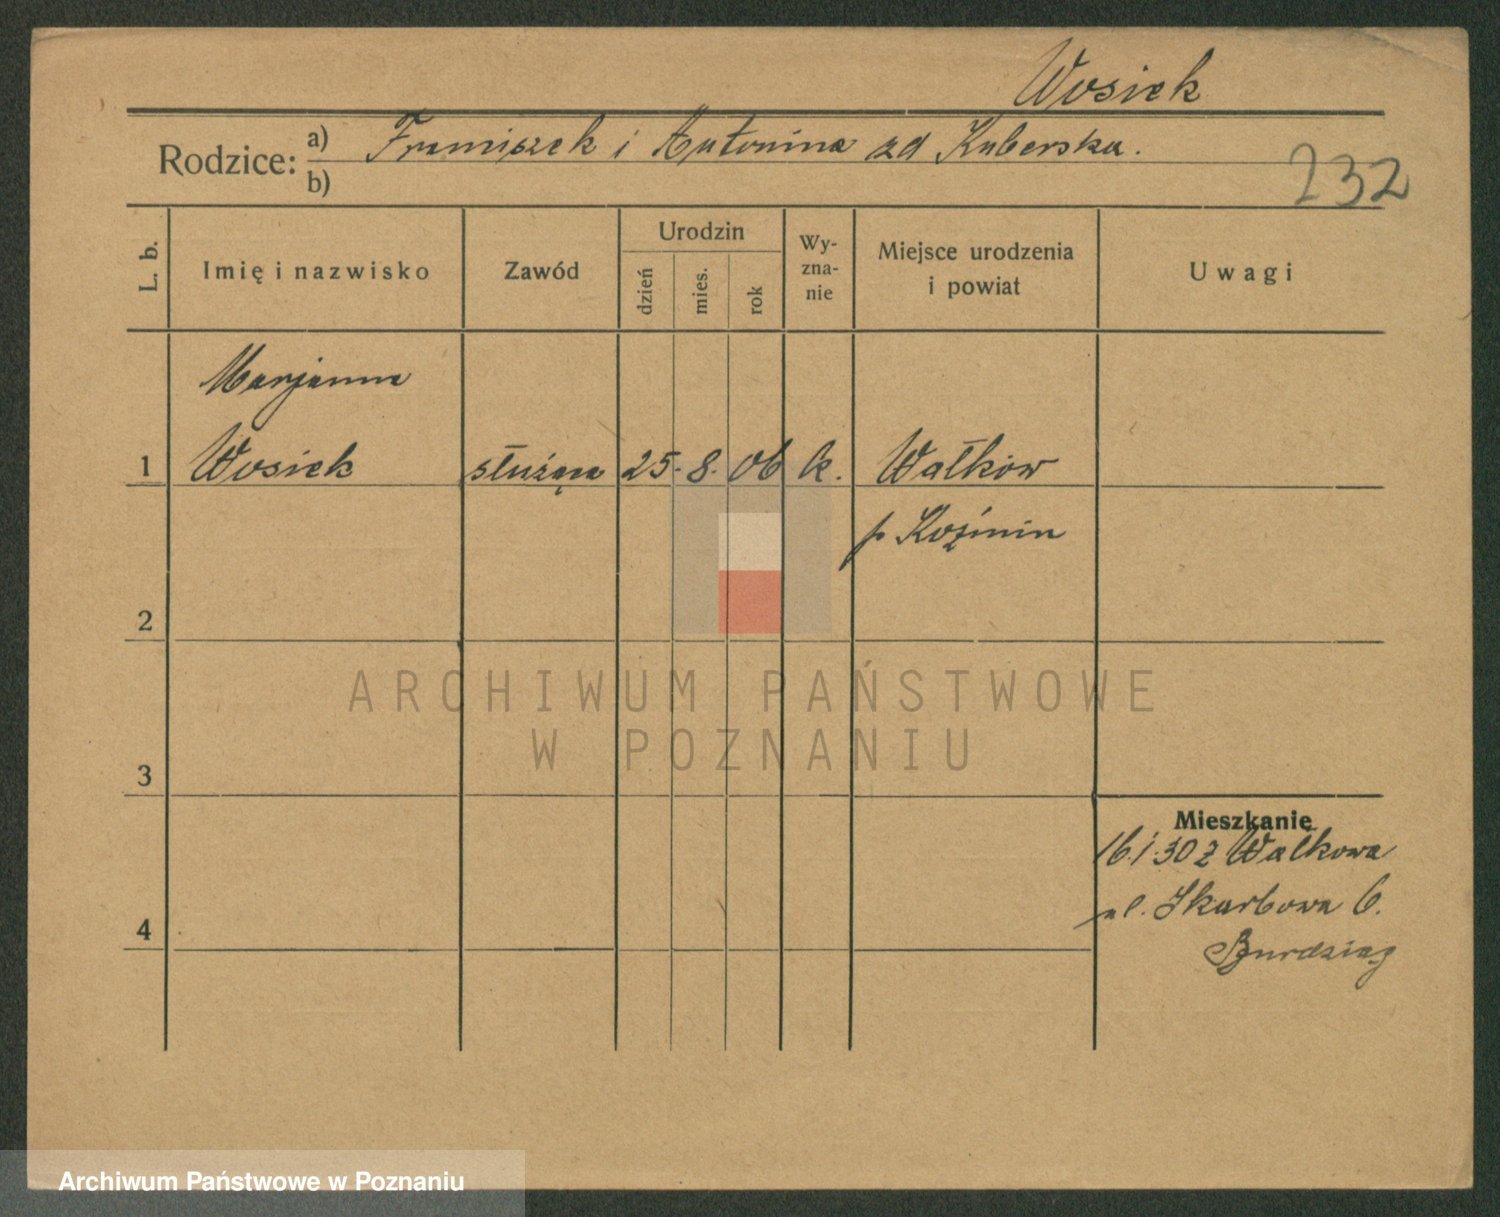 Wosiek
Rodzice: a) Franciszek i Antonina zd Kuberska.
b)
232
L. b.
Imię i nazwisko
Zawód
Urodzin
dzień
mies.
rok
Wy-
zna-
nie
Miejsce urodzenia
i powiat
Uwagi
Marjanna
1 Wosiek służąca 25. 8. 06 k. Wałków
p Koźmin
2
ARCHIWUM PAŃSTWOWE
W POZNANIU
3
Mieszkanie
16.1.30 z Wałkowa
ul. Skarbowa 6.
4
Burdziąg
Archiwum Państwowe w Poznaniu